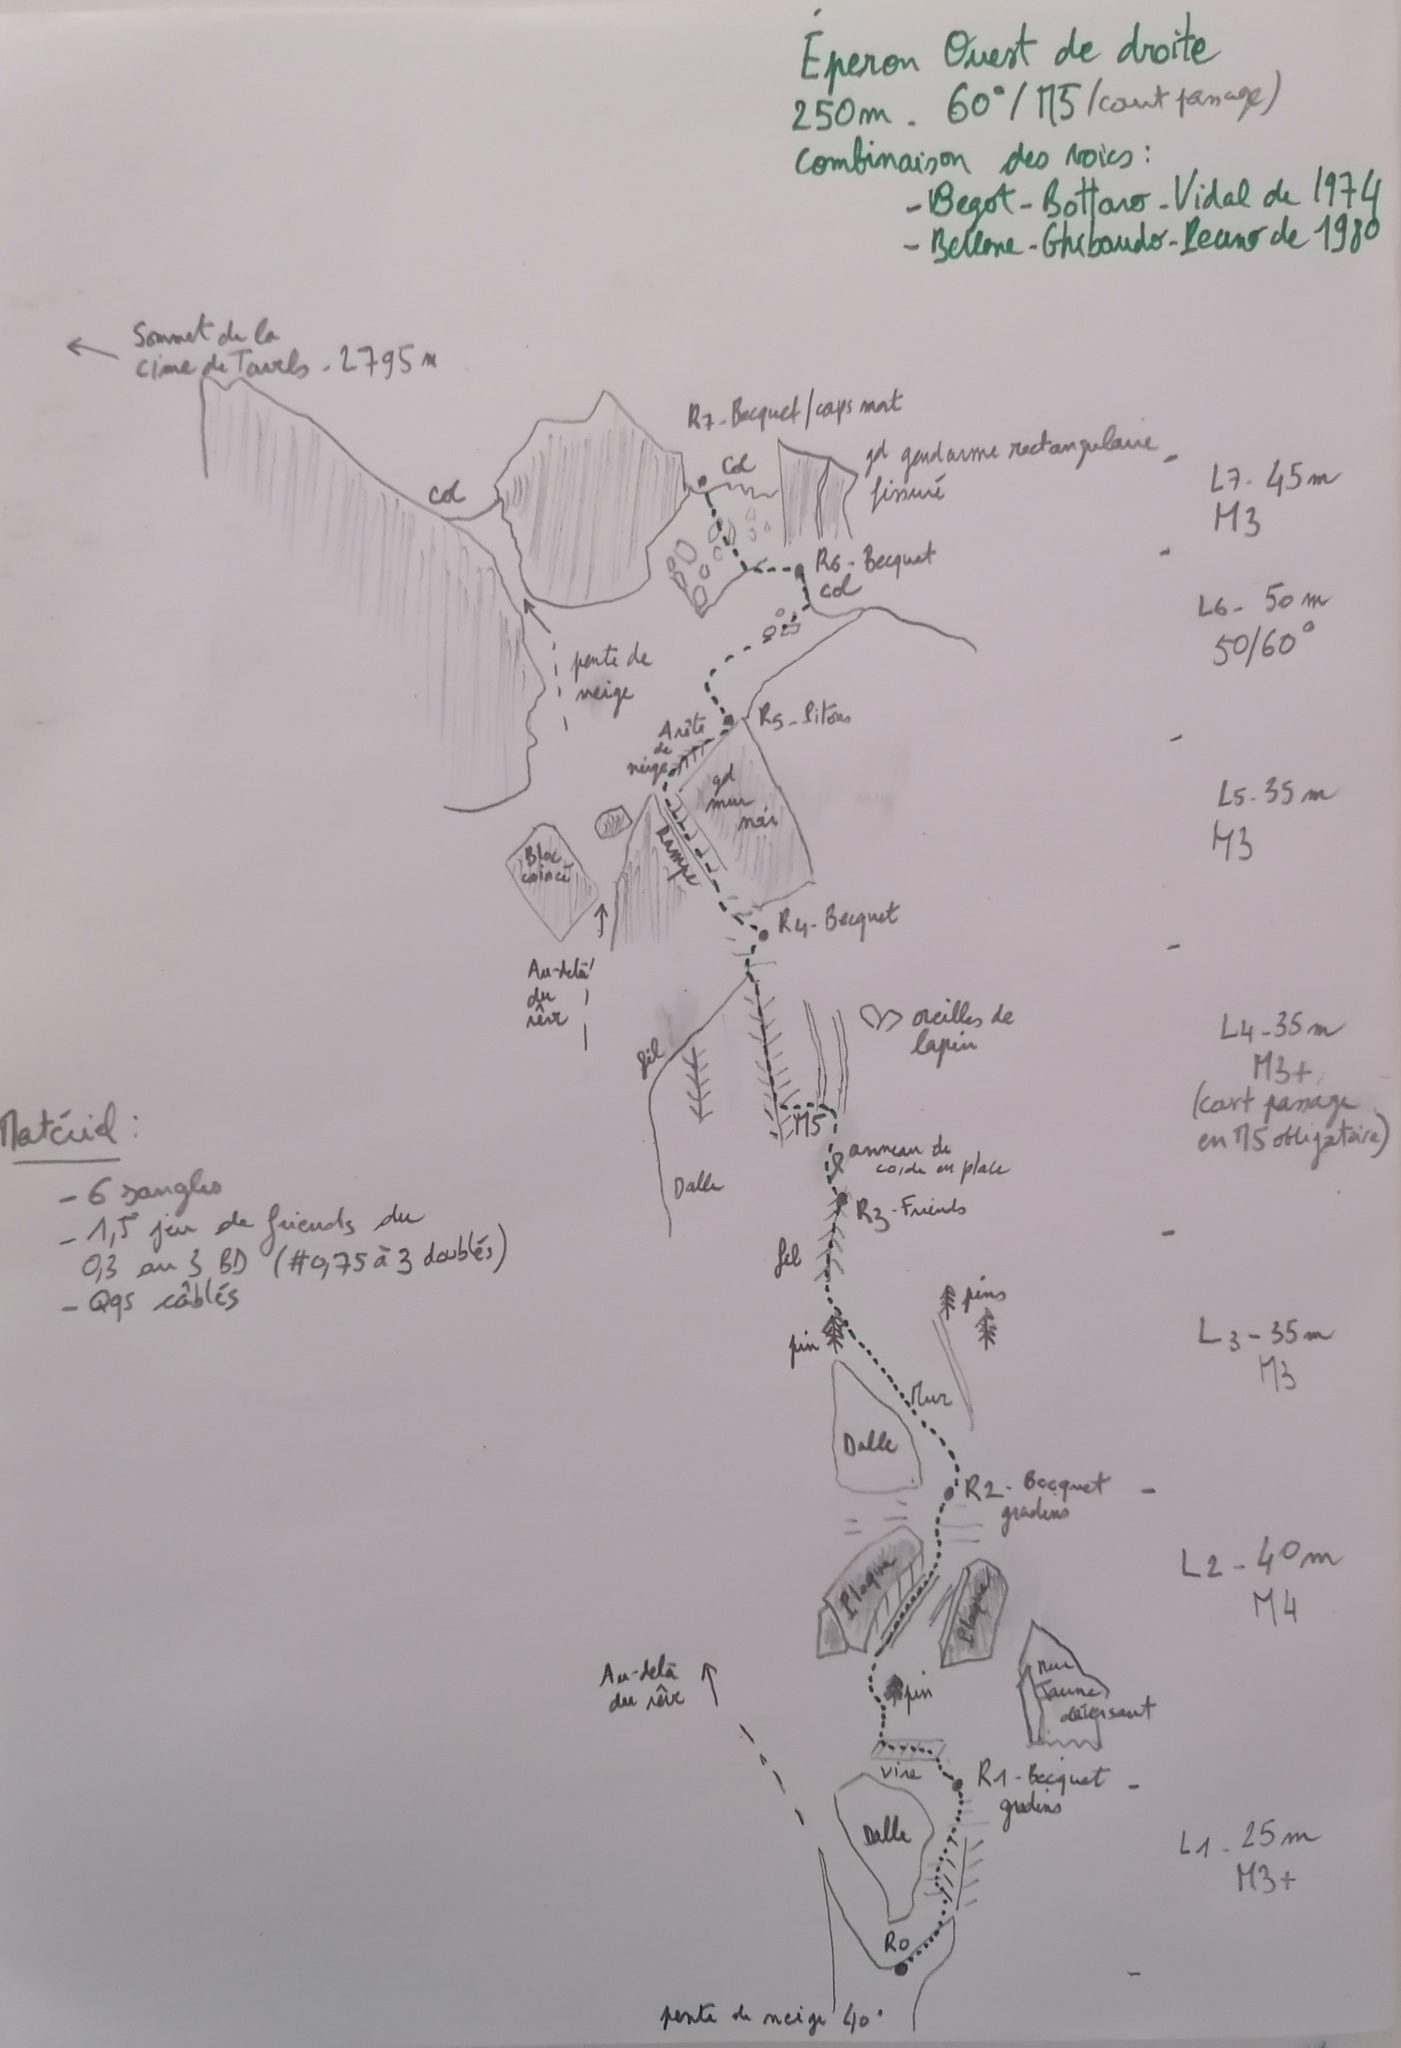 Éperon Ouest de droite
250m. 60°/M5 (court passage)
combinaison des voies:
- Begot - Bottaro - Vidal de 1974
- Bellone - Ghibaudo - Peano de 1980
Sommet de la
cime de Tavels - 2795m
R7 - Becquet/corps mort
col
gd gendarme rectangulaire
fissuré
L7 - 45m
M3
col
R6 - Becquet
col
L6 - 50m
50/60°
pente de
neige
R5 - Pitons
Arête
de
neige
gd
mur
noir
L5 - 35m
M3
Rampe
Bloc
coincé
R4 - Becquet
Au-delà
du
rêve
oreilles de
lapin
L4 - 35m
M3+
(court passage
en M5 obligatoire)
fil
M5
anneau de
corde en place
Dalle
R3 - Friends
Matériel:
- 6 sangles
- 1,5 jeu de friends du
0,3 au 3 BD (#0,75 à 3 doublés)
- Qqs câblés
fil
pins
pin
L3 - 35m
M3
Mur
Dalle
R2 - Becquet
gradins
L2 - 40m
M4
Plaque
Plaque
Au-delà
du rêve
pin
mur
Jaune
déversant
vire
R1 - Becquet
gradins
Dalle
L1 - 25m
M3+
R0
pente de neige 40°